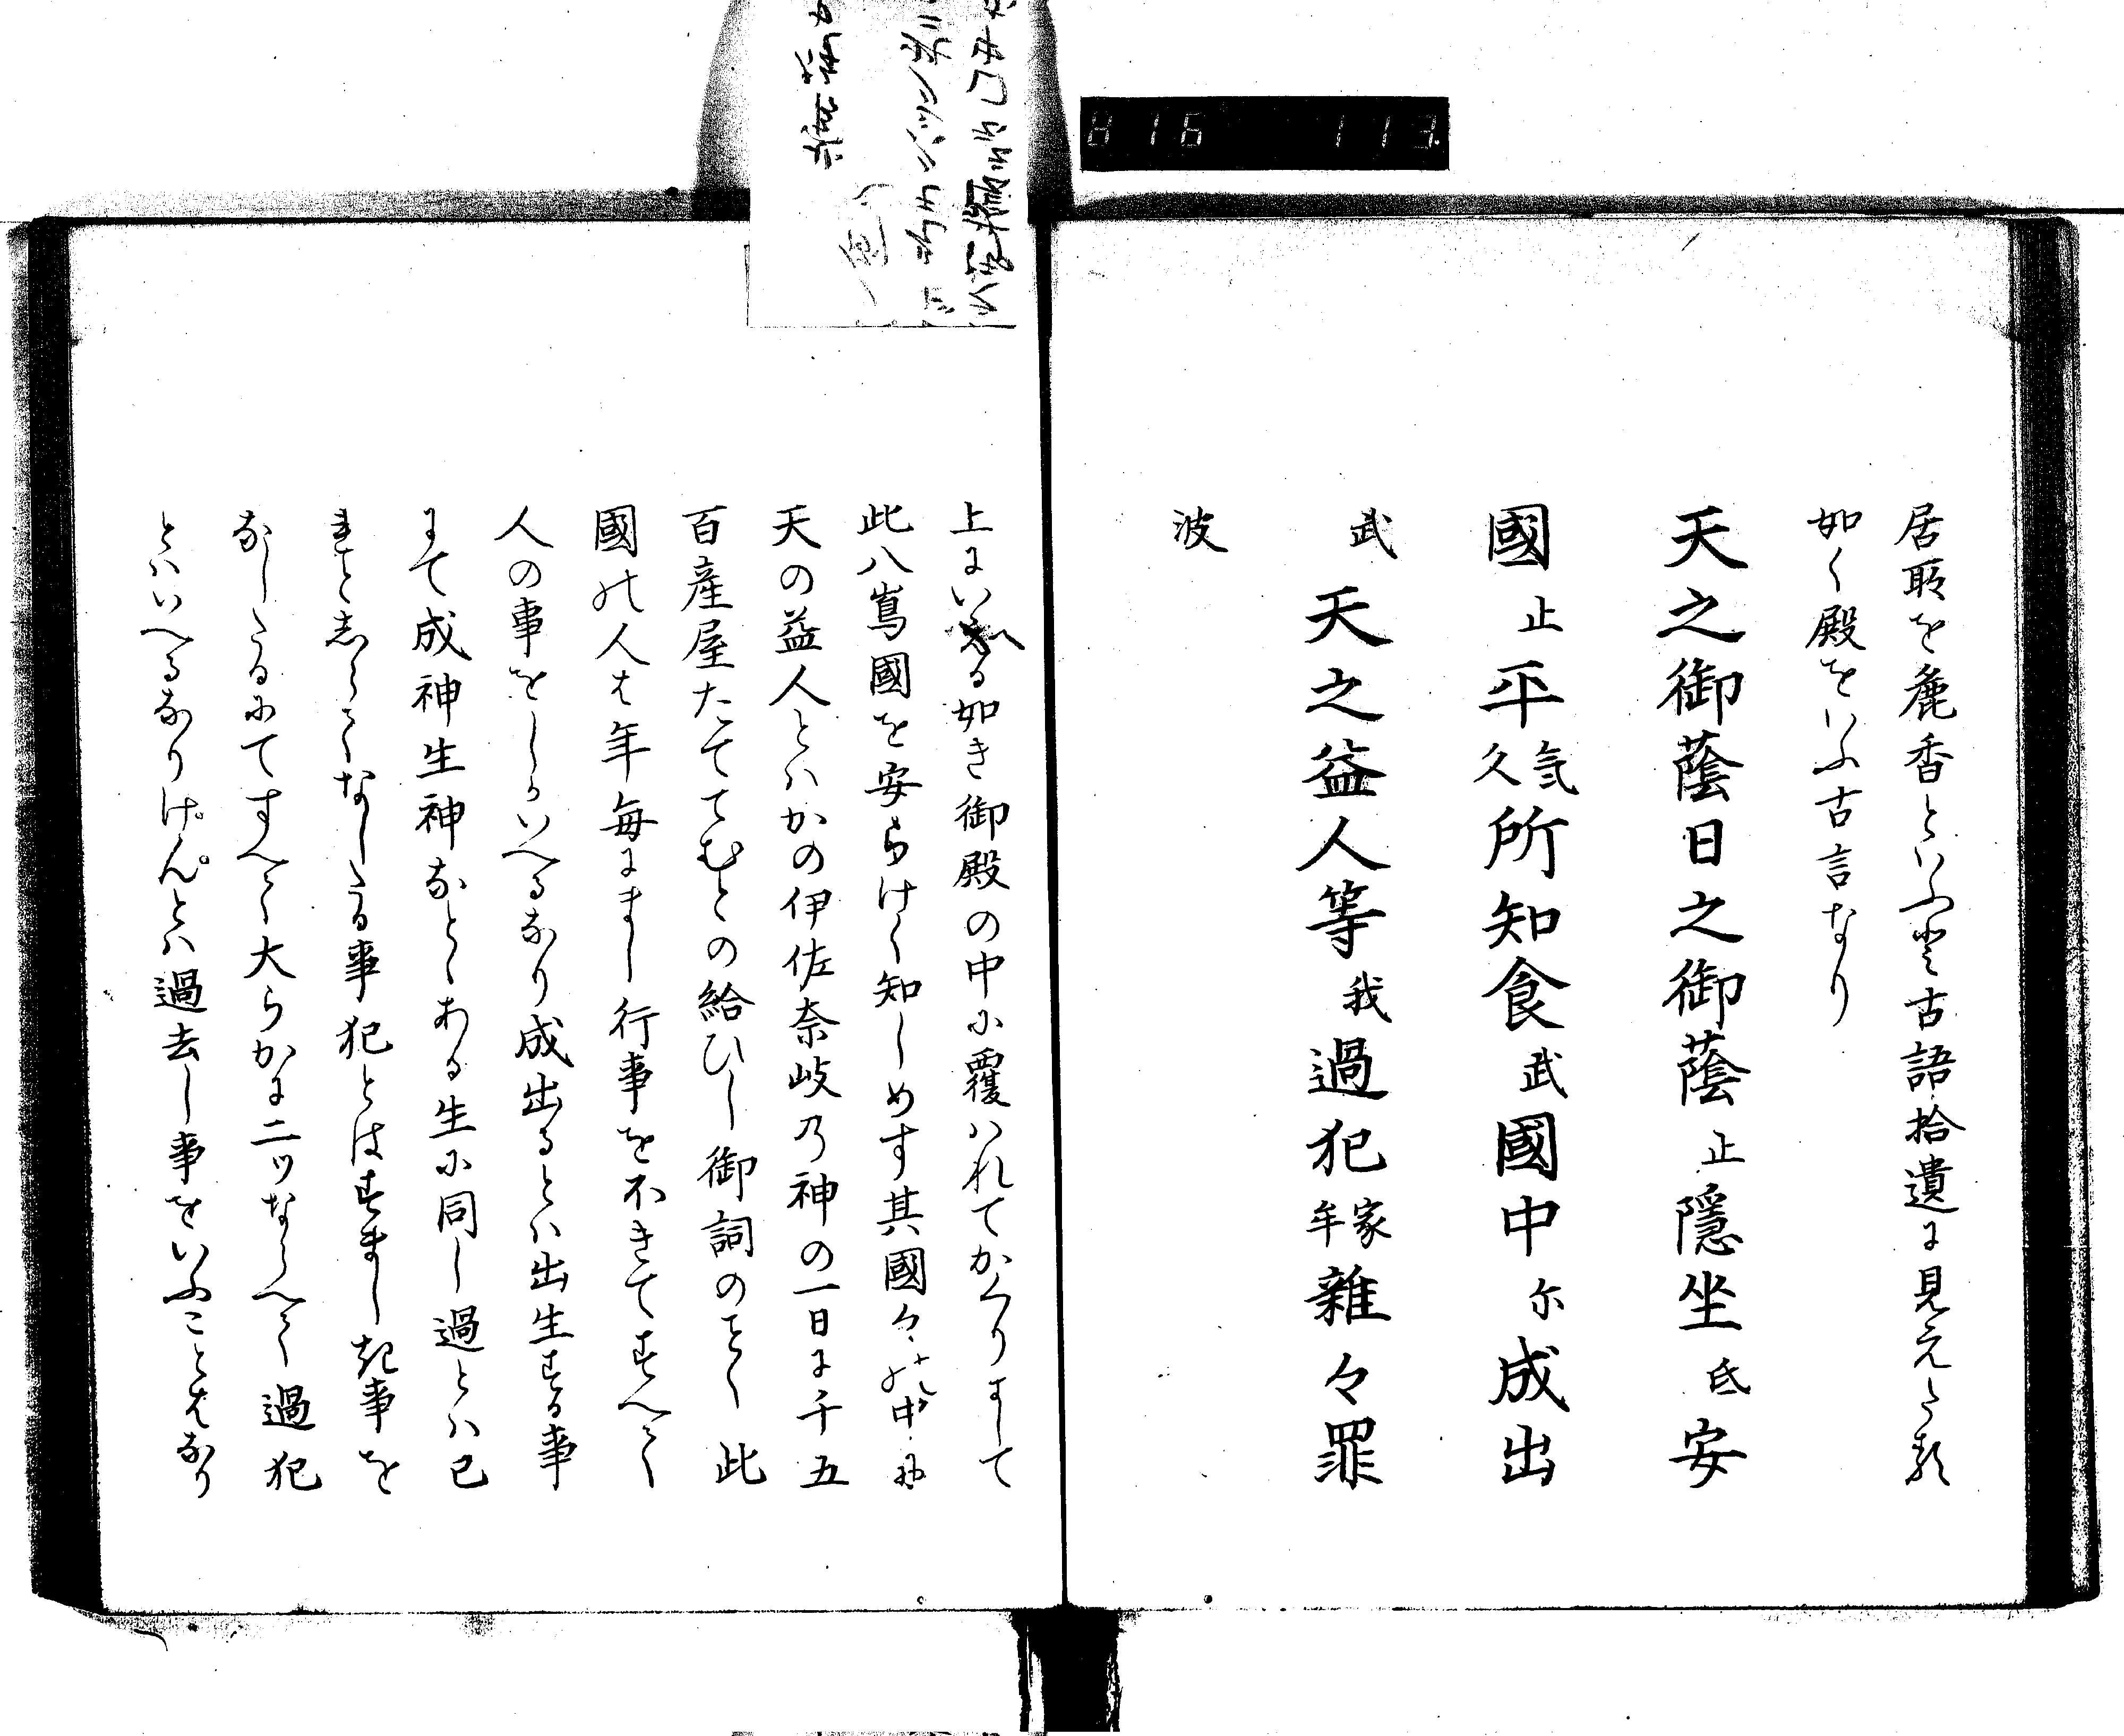 居所を麁香といふ登古語拾遺に見えたる
如く殿をいふ古言なり
天之御蔭日之御蔭止隠坐氐安
國止平気久所知食武國中尓成出
武天之益人等我過犯家牟雑々罪
波
上にいへる如き御殿の中に覆はれてかくりまして
此八嶌國を安らけく知しめす其國々の中に
天の益人とはかの伊佐奈岐乃神の一日に千五
百産屋たててむとの給ひし御詞のまゝ此
國の人は年毎にまし行事をおきてすへて
人の事をしかいへるなり成出るとは出生する事
にて成神生神なとゝある生に同し過とは已
まことしらてなしたる事犯とはすましき事を
なしたるにてすへて大らかに二ツならへて過犯
といへるなりけんとは過去し事をいふことはなり
816 113